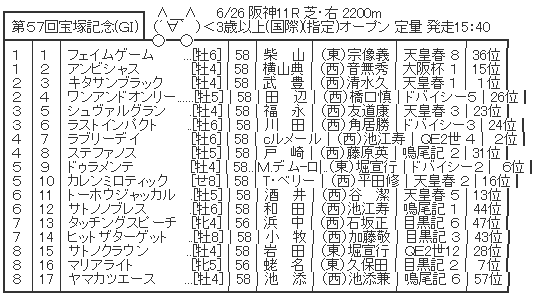 第57回宝塚記念(GI) 6/26 阪神11R 芝・右 2200m
( ´∀`) <3歳以上(国際)(指定)オープン 定量 発走15:40
1 | 1 | フェイムゲーム ...[牡6] | 58 | 柴 山 | (東)宗像義 | 天皇春 8 | 36位
1 | 2 | アンビシャス ......[牡4] | 58 | 横山典 | (西)音無秀 | 大阪杯 1 | 15位
2 | 3 | キタサンブラック ....[牡4] | 58 | 武 豊 | (西)清水久 | 天皇春 1 | 1位
2 | 4 | ワンアンドオンリー .....[牡5] | 58 | 田 辺 | (西)橋口慎 | ドバイシー5 | 26位
3 | 5 | シュヴァルグラン ....[牡4] | 58 | 福 永 | (西)友道康 | 天皇春 3 | 23位
3 | 6 | ラストインパクト ....[牡6] | 58 | 川 田 | (西)角居勝 | ドバイシー3 | 24位
4 | 7 | ラブリーデイ .......[牡6] | 58 | cルメール | (西)池江寿 | QE2世 4 | 2位
4 | 8 | ステファノス ......[牡5] | 58 | 戸 崎 | (西)藤原英 | 鳴尾記 2 | 31位
5 | 9 | ドゥラメンテ ......[牡4] | 58 | M.デムーロ | (東)堀宣行 | ドバイシー2 | 6位
5 | 10 | カレンミロティック ....[せ8] | 58 | T・ベリー | (西)平田修 | 天皇春 2 | 16位
6 | 11 | トーホウジャッカル ...[牡5] | 58 | 酒 井 | (西)谷 潔 | 天皇春 5 | 13位
6 | 12 | サトノノブレス ....[牡6] | 58 | 和 田 | (西)池江寿 | 鳴尾記 1 | 44位
7 | 13 | タッチングスピーチ ....[牝4] | 56 | 浜 中 | (西)石坂正 | 目黒記 6 | 47位
7 | 14 | ヒットザターゲット .....[牡8] | 58 | 小 牧 | (西)加藤敬 | 目黒記 3 | 43位
8 | 15 | サトノクラウン ....[牡4] | 58 | 岩 田 | (東)堀宣行 | QE2世12 | 28位
8 | 16 | マリアライト ......[牝5] | 56 | 蛯 名 | (東)久保田 | 目黒記 2 | 7位
8 | 17 | ヤマカツエース ....[牡4] | 58 | 池 添 | (西)池添兼 | 鳴尾記 6 | 57位